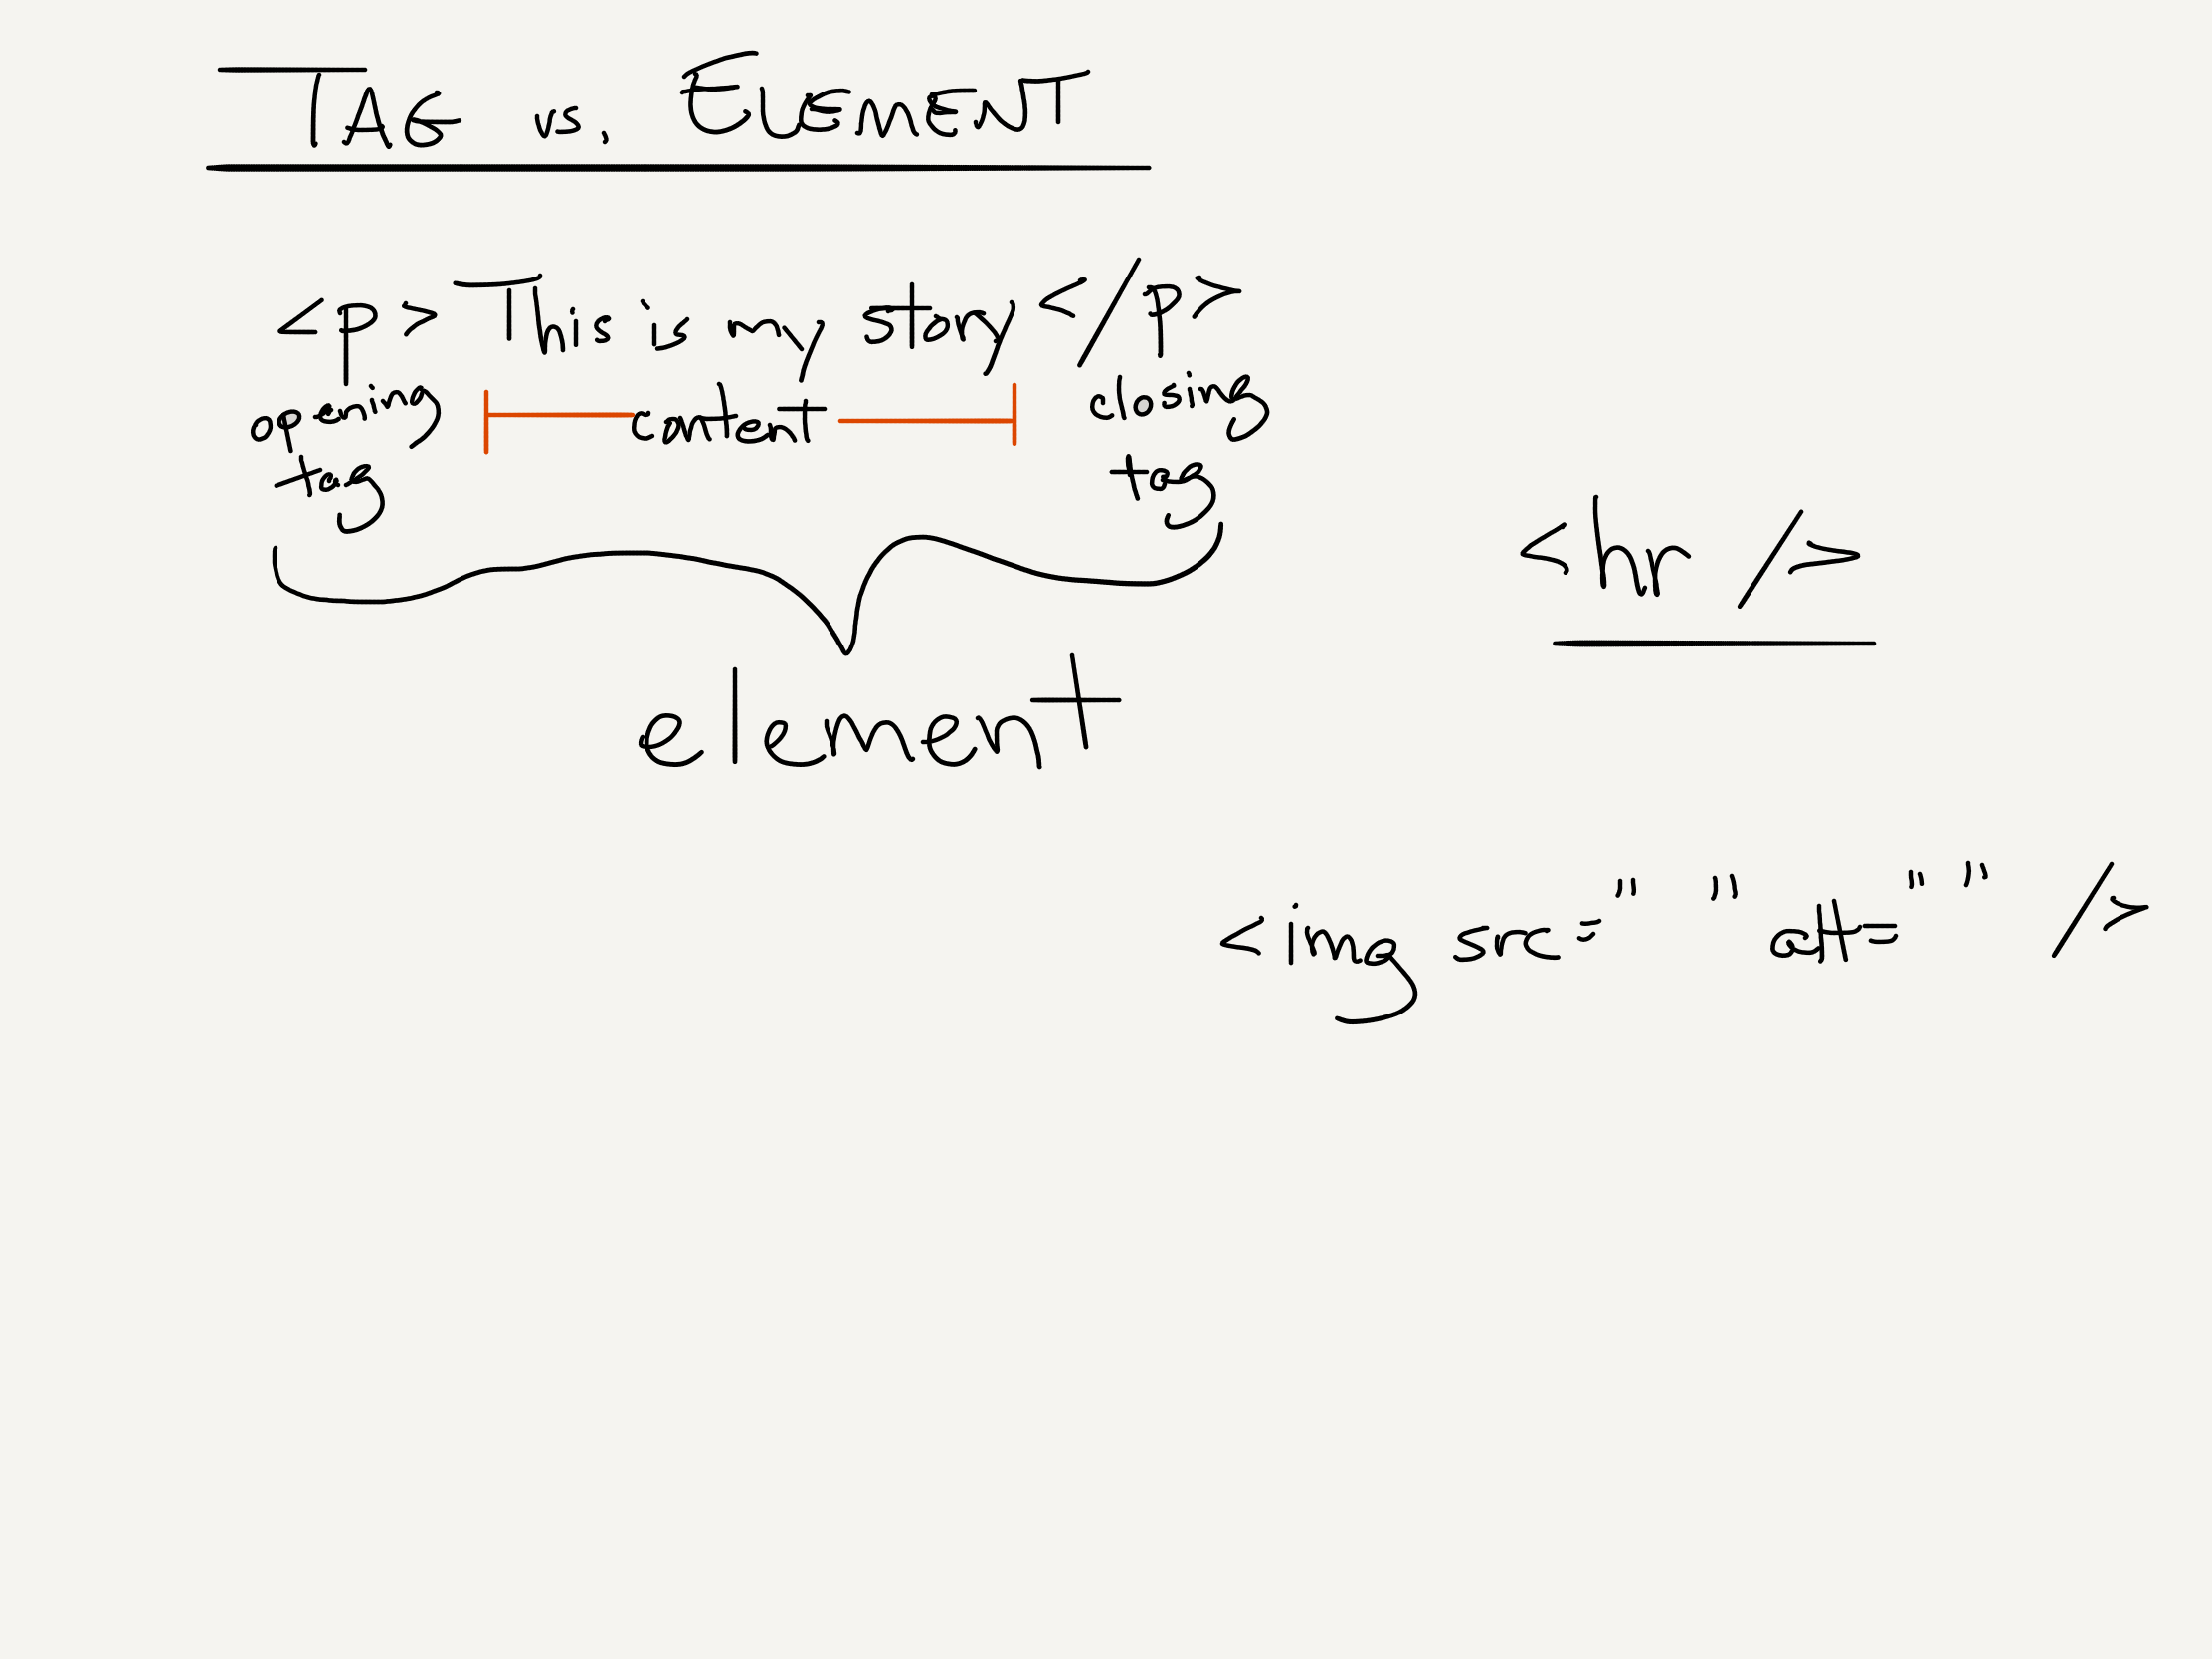 TAG vs. ELEMENT
<p> This is my story </p>
opening tag
content
closing tag
element
<hr />
<img src=" " alt=" " />